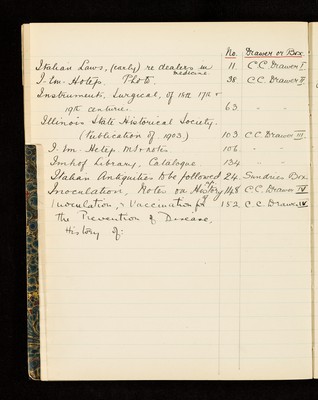 No. Drawer or Box.
Italian Laws, (early) re dealers in medicine. 11 C.C. Drawer I.
I-Em-Hotep. Photo. 38 C.C. Drawer II.
Instruments, Surgical, of 16th 17th &
19th centuries. 63 " "
Illinois State Historical Society.
(Publication of 1903.) 103 C.C. Drawer III
I. Em. Hotep. MS. notes 106 " "
Imhof Library, Catalogue 134 " "
Italian Antiquities to be followed 24. Sundries Box.
Inoculation, Notes on History of 148 C.C. Drawer IV
Inoculation, & Vaccination for 152 C.C. Drawer IV
the Prevention of Disease,
History of: